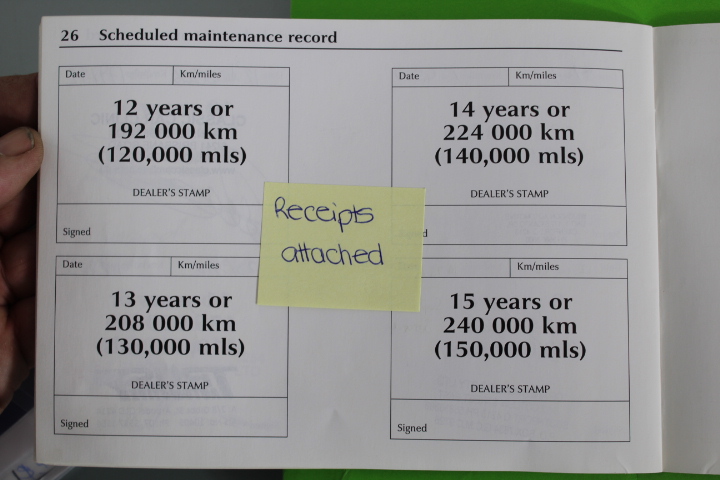 26 Scheduled maintenance record
Date Km/miles
12 years or
192 000 km
(120,000 mls)
DEALER'S STAMP
Signed
Date Km/miles
14 years or
224 000 km
(140,000 mls)
DEALER'S STAMP
d
Receipts
attached
Date Km/miles
13 years or
208 000 km
(130,000 mls)
DEALER'S STAMP
Signed
Km/miles
15 years or
240 000 km
(150,000 mls)
DEALER'S STAMP
Signed